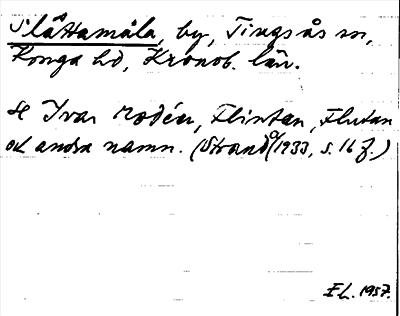 Slättamåla, by, Tingsås sn,
Konga hd, Kronob. län.
Se Ivar Modéer, Flintan, Flutan
och andra namn. (Strand 1933, s. 16 f.)
E L. 1957.